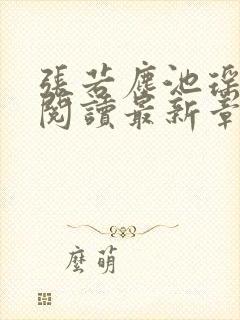 張若塵池瑤
閱讀最新章
麼萌